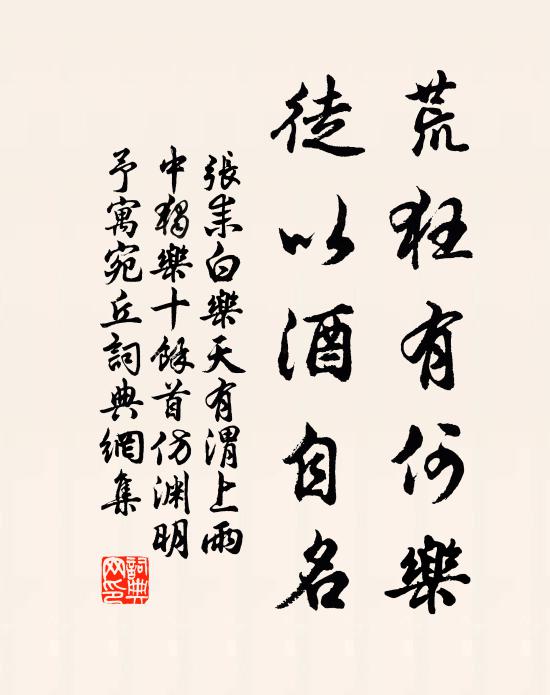 荒狂有何樂
徒以酒自名
張耒白樂天有渭上雨
中獨樂十餘首仿淵明
予寓宛丘詞典網集
詞典
网印